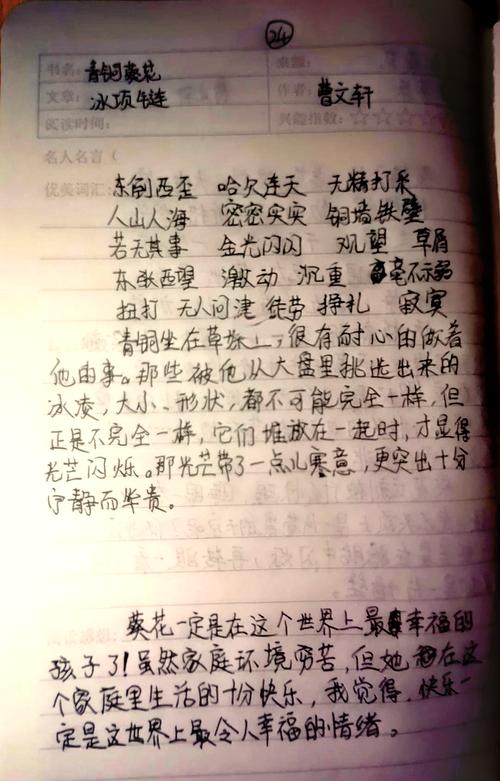 24
书名: 青铜葵花 来源:
文章: 冰项链 作者: 曹文轩
阅读时间: 兴趣指数: ☆☆☆☆☆
名人名言(
优美词汇: 东倒西歪 哈欠连天 无精打采
人山人海 密密实实 铜墙铁壁
若无其事 金光闪闪 观望 草屑
东张西望 激动 沉重 毫不示弱
扭打 无人问津 徒劳 挣扎 寂寞
青铜坐在草垛上,很有耐心的做着
他由事。那些被他从大盘里挑选出来的
冰凌,大小、形状,都不可能完全一样,但
正是不完全一样,它们堆放在一起时,才显得
光芒闪烁。那光芒带了一点儿寒意,更突出十分
宁静而华贵。
葵花一定是在这个世界上最幸福的
孩子了!虽然家庭环境穷苦,但她在这
个家庭里生活的十分快乐,我觉得,快乐一
定是这世界上最令人幸福的情绪。